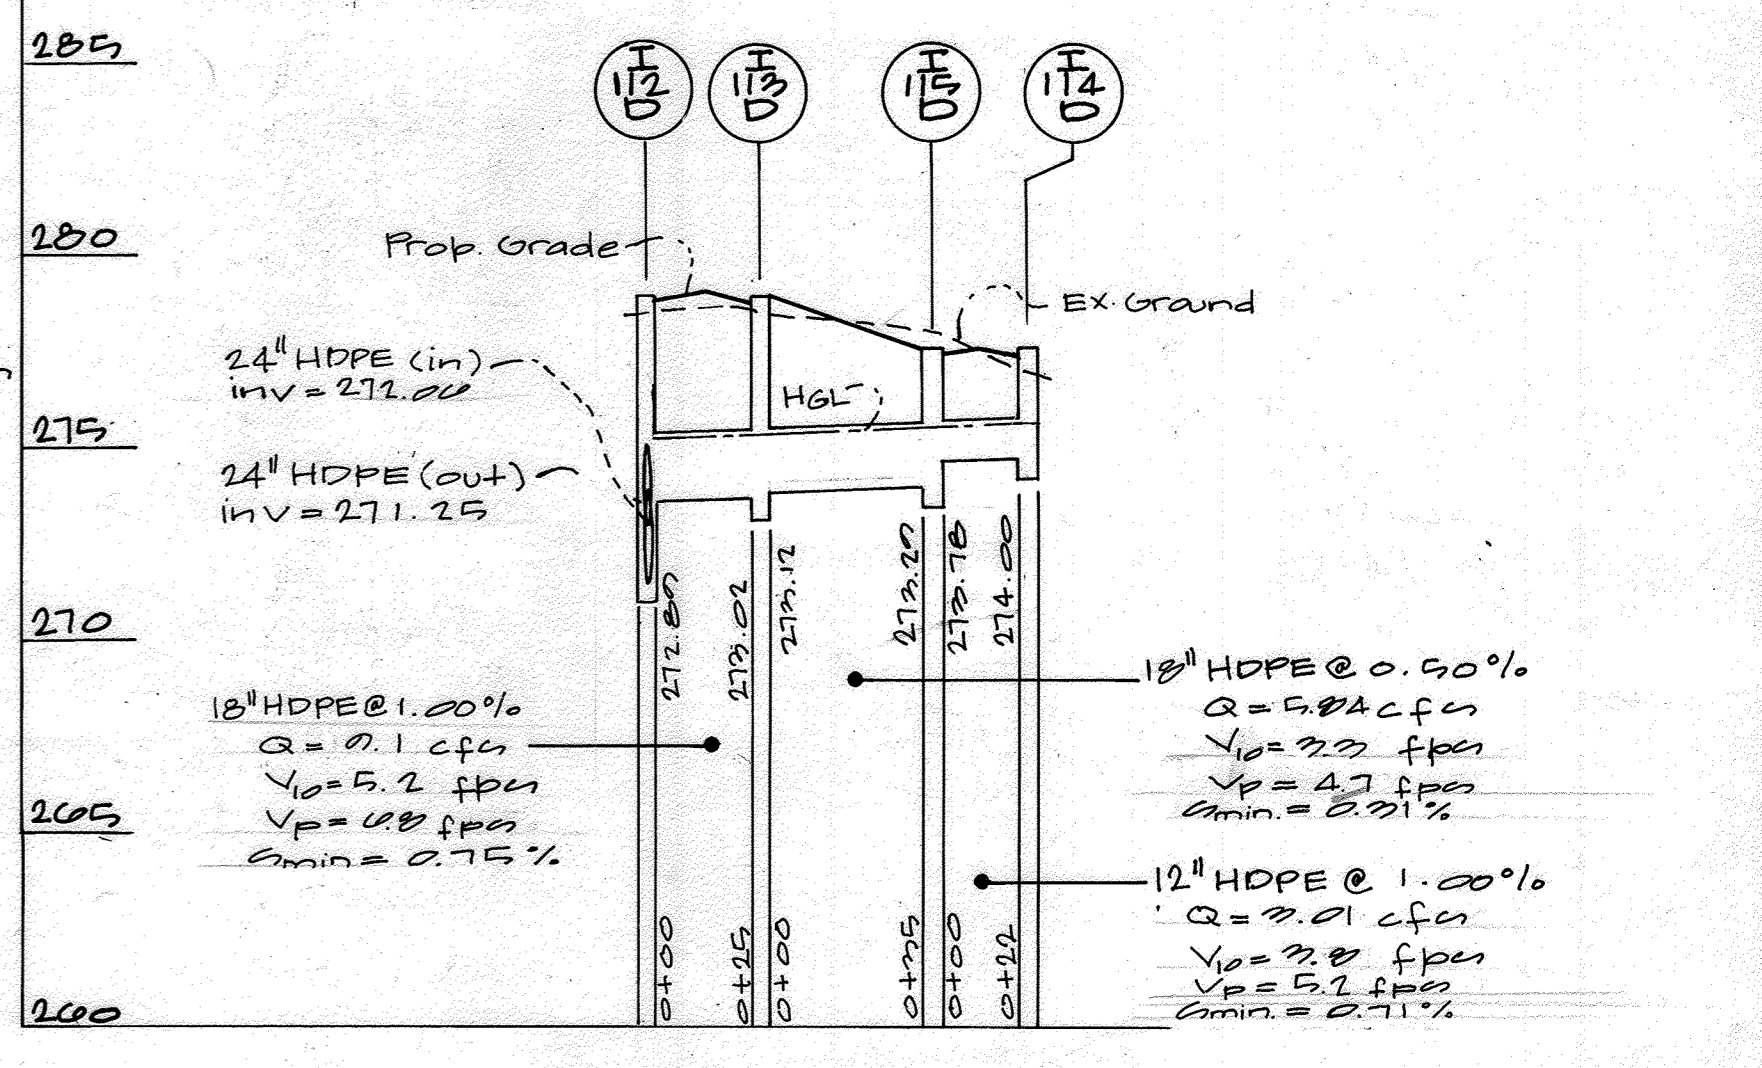 285
280
275
270
265
260
I
112
D
I
113
D
I
115
D
I
114
D
Prop. Grade
Ex. Ground
HGL
24" HDPE (in)
inv =
24" HDPE (out)
inv = 271.25
272.89
273.02
273.12
273.29
273.78
274.00
18" HDPE @ 1.00%
Q = 9.1 cfs
V10 = 5.2 fps
Vp = 6.8 fps
Smin = 0.75%
18" HDPE @ 0.50%
Q = 5.84 cfs
V10 = 3.3 fps
Vp = 4.7 fps
Smin. = 0.31%
12" HDPE @ 1.00%
Q = 3.01 cfs
V10 = 3.8 fps
Vp = 5.2 fps
Smin. = 0.71%
0+00
0+25
0+00
0+35
0+00
0+22